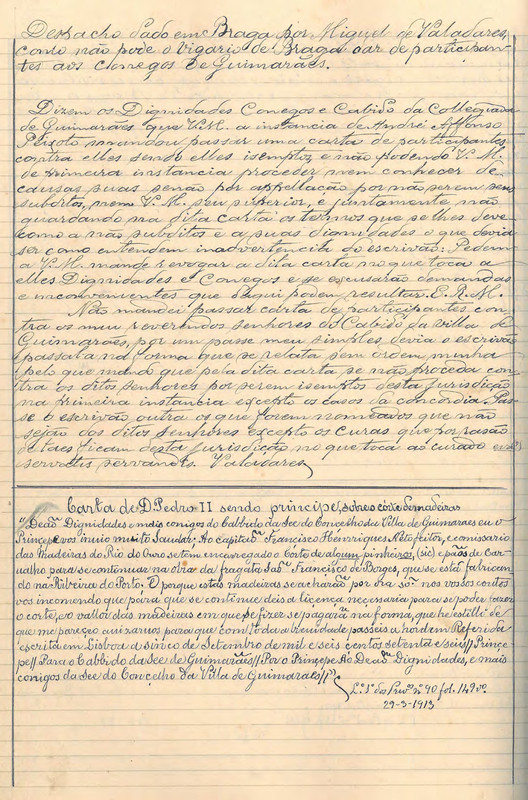 Despacho dado em Braga por Miguel de Valadares,
como não pode o vigario de Braga dar de participan-
tes aos Conegos de Guimarães.
Dizem os Dignidades Conegos e Cabido da Collegiada
de Guimarães que V. M. a instancia de André Affonso
Peixoto mandou passar uma carta de participantes
contra elles sendo elles isemptos, e não podendo V. M.
de primeira instancia proceder nem conhecer de
causas suas senão por appellação por não serem seus
subditos, nem V. M. seu superior, e juntamente não
guardando na dita carta os termos que se lhes deve
como a não subditos e a suas dignidades o que devia
ser como entendem inadvertencia do escrivão: Pedem
a V. M. mande revogar a dita carta no que toca a
elles Dignidades e Conegos e se escusarão demandas
e inconvenientes que daqui podem resultar. E. R. M.
Não mandei passar carta de participantes con-
tra os meu reverendos senhores do Cabido da Villa de
Guimarães, por um passe meu simples devia o escrivão
passal-a na forma que se relata sem ordem minha
pelo que mando que pela dita carta se não proceda con-
tra os ditos senhores por serem isemptos desta jurisdicção
na primeira instancia excepto os casos da concordia. Pas-
se o escrivão outra os que forem nomeados que não
sejão dos ditos senhores excepto os curas que por rasão
de taes ficam desta jurisdicção no que toca ao curado
servatis servandis. Valadares
Carta de D. Pedro II sendo principe, sobre o córte de madeiras
"Deaõ Dignidades e mais conigos do Cabbido da See do Concelho da Villa de Guimaraes eu o
Princepe vos invio muito Saudar; Ao capitaõ Francisco Henrriques Neto feitor, e comissario
das madeiras do Rio do Ouro setem encarregado o Corte de alguns pinheiros, (sic) e páos de Car-
valho para se continuar na obra da fragata Saõ Francisco de Borges, que se está fabrican
do na Ribeira do Porto. E porque estas madeiras se acharaõ por ora só nos vossos coutos
vos incomendo que para que se continue deis a licença necessaria para se poder fazer
o corte, e o vallor das madeiras em que se fizer se pagará na forma, que he estillo de
que me pareceo avizarvos para que com toda a brevidade passeis a hordem Referida
escrita em Lisboa a sinco de Setembro de mil e seis centos setenta e seis// Prince
pe// Para o Cabbido da See de Guimaraes// Por o Princepe Ao Deaõ Dignidades, e mais
conigos da See do Concelho da Villa de Guimaraes//"
L.º 1º dos Priv.os nº 90 fol. 149 vº
29-3-1913